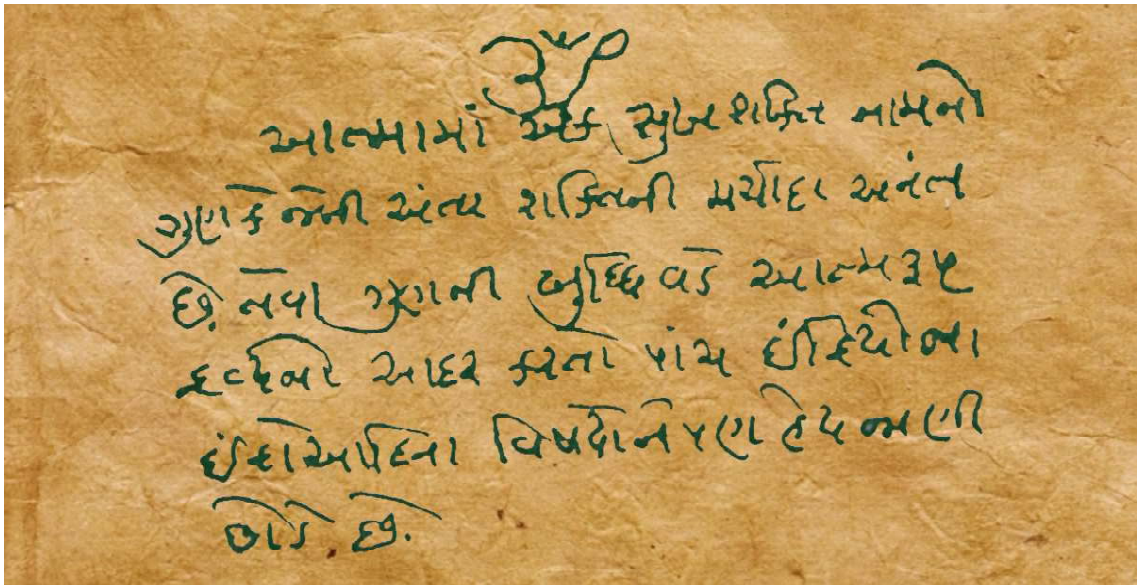 ૐ
આત્મામાં એક સુખશક્તિ નામનો
ગુણ કે જેની અંતર શક્તિની મર્યાદા અનંત
છે, તેવા ગુણની બુધ્ધિ વડે આત્મરૂપ
દ્રવ્યનો આદર કરતો પાંચ ઈંદ્રિયોના
ઈંદ્રોઆદિના વિષયોને પણ હેય જાણી
છોડે છે.